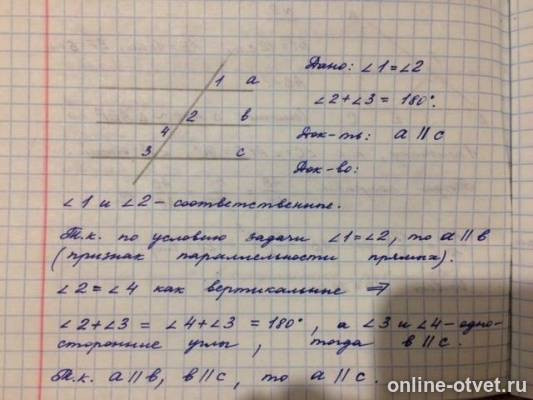 1 a
2 b
4
3 c
Дано: ∠1=∠2
∠2+∠3= 180°.
Док-ть: a || c
Док-во:
∠1 и ∠2 - соответственные.
Т.к. по условию задачи ∠1=∠2, то a || b
(признак параллельности прямых).
∠2=∠4 как вертикальные ⇒
∠2+∠3 = ∠4+∠3 = 180°, а ∠3 и ∠4 - одно-
сторонние углы, тогда b || c.
Т.к. a || b, b || c, то a || c.
online-otvet.ru